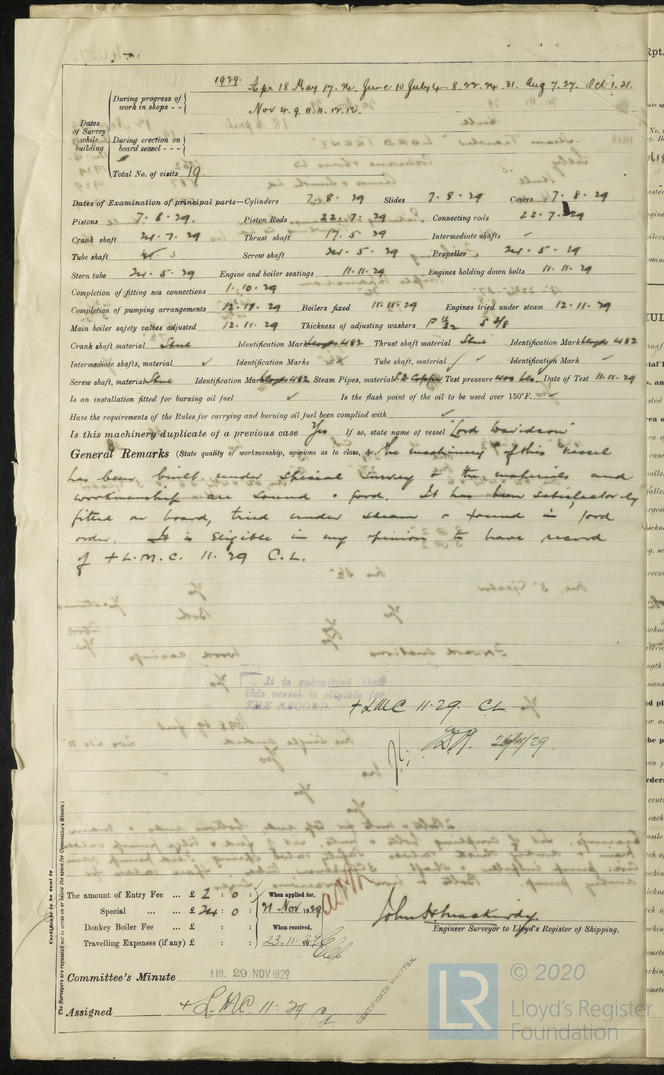 1929. Apr 18 May 17. 24. June 10 July 4. 8. 22. 24. 31. Aug 7. 27. Oct 1. 21.
During progress of work in shops - -
Nov 4. 9. 11. 11. 12. 12.
Dates of Survey while building
During erection on board vessel - - -
Total No. of visits 19.
Dates of Examination of principal parts—Cylinders 7. 8. 29 Slides 7. 8. 29 Covers 7. 8. 29
Pistons 7. 8. 29 Piston Rods 22. 7. 29 Connecting rods 22. 7. 29
Crank shaft 24. 7. 29 Thrust shaft 17. 5. 29 Intermediate shafts ✓
Tube shaft Screw shaft 24. 5. 29 Propeller 24. 5. 29
Stern tube 24. 5. 29 Engine and boiler seatings 11. 11. 29 Engines holding down bolts 11. 11. 29
Completion of fitting sea connections 1. 10. 29
Completion of pumping arrangements 12. 11. 29 Boilers fixed 11. 11. 29 Engines tried under steam 12. 11. 29
Main boiler safety valves adjusted 12. 11. 29 Thickness of adjusting washers P 11/32 S 3/8
Crank shaft material Steel Identification Mark Lloyds 482 Thrust shaft material Steel Identification Mark Lloyds 482
Intermediate shafts, material ✓ Identification Marks Tube shaft, material ✓ Identification Mark ✓
Screw shaft, material Steel Identification Mark Lloyds 482 Steam Pipes, material S.D. Copper Test pressure 400 lbs. Date of Test 11. 11. 29
Is an installation fitted for burning oil fuel ✓ Is the flash point of the oil to be used over 150°F. ✓
Have the requirements of the Rules for carrying and burning oil fuel been complied with ✓
Is this machinery duplicate of a previous case Yes If so, state name of vessel "Lord Davidson"
General Remarks (State quality of workmanship, opinions as to class, &c. The machinery of this vessel
has been built under special survey & the materials and
workmanship are sound & good. It has been satisfactorily
fitted on board, tried under steam & found in good
order. It is eligible in my opinion to have record
of + L.M.C. 11. 29 C.L.
It is submitted that
this vessel is eligible for
THE RECORD. + LMC 11. 29. CL
The amount of Entry Fee ... £ 2 : 0 : When applied for,
Special ... ... £ 24 : 0 : 21 Nov 1929
Donkey Boiler Fee ... £ : : When received,
Travelling Expenses (if any) £ : : 23. 11. 29
Engineer Surveyor to Lloyd's Register of Shipping.
Committee's Minute FRI. 29 NOV 1929
Assigned + LMC 11. 29 CL
CERTIFICATE WRITTEN
Certificate to be sent to
(The Surveyors are requested not to write on or below the space for Committee's Minute.)
© 2020
LR Lloyd's Register
Foundation